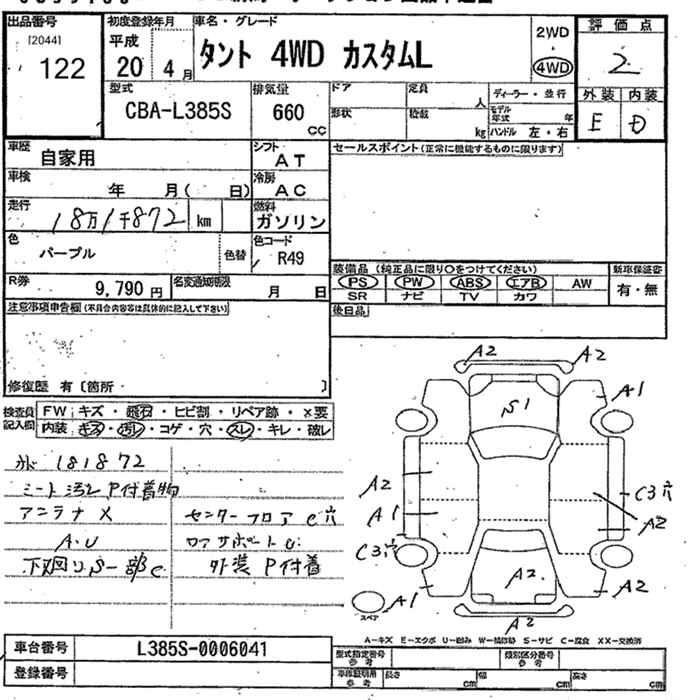 出品番号
[2044]
122
初度登録年月
平成
20 年 4 月
車名・グレード
タント 4WD カスタムL
2WD
・
4WD
評価点
2
外装 内装
E D
型式
CBA-L385S
排気量
660 CC
ドア
形状
定員 人
積載 kg
ディーラー・並行
モデル年式 年
ハンドル 左・右
車歴
自家用
シフト
AT
車検
年 月( 日)
冷房
AC
走行
18万1千872 km
燃料
ガソリン
色
パープル
色替
色コード
R49
R券
9,790 円
名変通知期限
月 日
セールスポイント(正常に機能するものに限ります)
装備品 (純正品に限り〇をつけてください)
PS PW ABS エアB AW
SR ナビ TV カワ
新車保証書
有・無
後日品
注意事項申告欄(不具合内容等は具体的に記入して下さい)
修復歴 有〔箇所 〕
検査員記入欄
FW:キズ・飛石・ヒビ割・リペア跡・×要
内装:キズ・汚レ・コゲ・穴・スレ・キレ・破レ
外ト 181872
シート汚レ P付着物
アンテナ X
A.U
下廻りS一部C
センターフロア C穴
ロアサポート U
外装 P付着
A2
A2
A1
S1
A2
A1
C3穴
C3穴
A2
A2
A2
A1
スペア
A2
A-キズ E-エクボ U-凹み W-補修跡 S-サビ C-腐食 XX-交換済
車台番号
L385S-0006041
登録番号
型式指定番号
参考
類別区分番号
参考
車庫証明用
参考
長さ cm
幅 cm
高さ cm